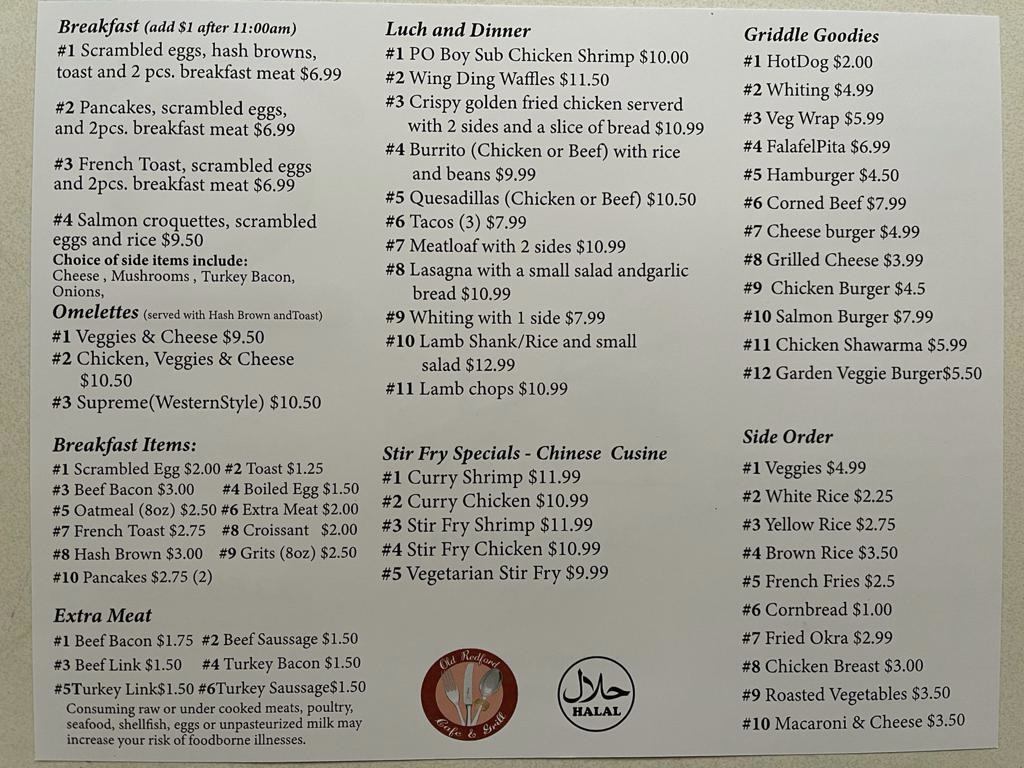 Breakfast (add $1 after 11:00am)
#1 Scrambled eggs, hash browns,
toast and 2 pcs. breakfast meat $6.99
#2 Pancakes, scrambled eggs,
and 2pcs. breakfast meat $6.99
#3 French Toast, scrambled eggs
and 2pcs. breakfast meat $6.99
#4 Salmon croquettes, scrambled
eggs and rice $9.50
Choice of side items include:
Cheese , Mushrooms , Turkey Bacon,
Onions,
Omelettes (served with Hash Brown andToast)
#1 Veggies & Cheese $9.50
#2 Chicken, Veggies & Cheese
$10.50
#3 Supreme(WesternStyle) $10.50
Breakfast Items:
#1 Scrambled Egg $2.00 #2 Toast $1.25
#3 Beef Bacon $3.00 #4 Boiled Egg $1.50
#5 Oatmeal (8oz) $2.50 #6 Extra Meat $2.00
#7 French Toast $2.75 #8 Croissant $2.00
#8 Hash Brown $3.00 #9 Grits (8oz) $2.50
#10 Pancakes $2.75 (2)
Extra Meat
#1 Beef Bacon $1.75 #2 Beef Sausage $1.50
#3 Beef Link $1.50 #4 Turkey Bacon $1.50
#5Turkey Link$1.50 #6Turkey Sausage$1.50
Consuming raw or under cooked meats, poultry,
seafood, shellfish, eggs or unpasteurized milk may
increase your risk of foodborne illnesses.
Luch and Dinner
#1 PO Boy Sub Chicken Shrimp $10.00
#2 Wing Ding Waffles $11.50
#3 Crispy golden fried chicken serverd
with 2 sides and a slice of bread $10.99
#4 Burrito (Chicken or Beef) with rice
and beans $9.99
#5 Quesadillas (Chicken or Beef) $10.50
#6 Tacos (3) $7.99
#7 Meatloaf with 2 sides $10.99
#8 Lasagna with a small salad andgarlic
bread $10.99
#9 Whiting with 1 side $7.99
#10 Lamb Shank/Rice and small
salad $12.99
#11 Lamb chops $10.99
Stir Fry Specials - Chinese Cusine
#1 Curry Shrimp $11.99
#2 Curry Chicken $10.99
#3 Stir Fry Shrimp $11.99
#4 Stir Fry Chicken $10.99
#5 Vegetarian Stir Fry $9.99
Old Redford
Cafe & Grill
حلال
HALAL
Griddle Goodies
#1 HotDog $2.00
#2 Whiting $4.99
#3 Veg Wrap $5.99
#4 FalafelPita $6.99
#5 Hamburger $4.50
#6 Corned Beef $7.99
#7 Cheese burger $4.99
#8 Grilled Cheese $3.99
#9 Chicken Burger $4.5
#10 Salmon Burger $7.99
#11 Chicken Shawarma $5.99
#12 Garden Veggie Burger$5.50
Side Order
#1 Veggies $4.99
#2 White Rice $2.25
#3 Yellow Rice $2.75
#4 Brown Rice $3.50
#5 French Fries $2.5
#6 Cornbread $1.00
#7 Fried Okra $2.99
#8 Chicken Breast $3.00
#9 Roasted Vegetables $3.50
#10 Macaroni & Cheese $3.50